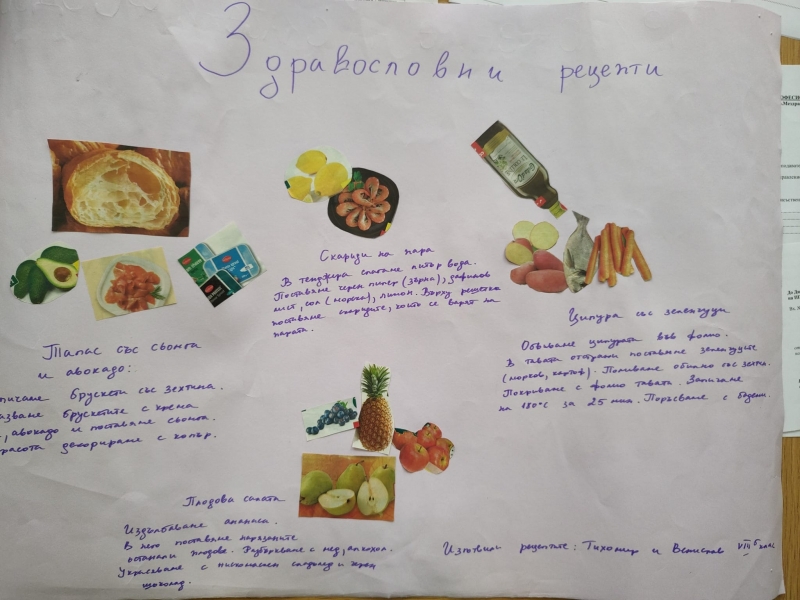 Здравословни рецепти
Скариди на пара
В тенджера слагаме литър вода.
Поставяме черен пипер (зърна), дафинов
лист, сол (морска), лимон. Върху решетка
поставяме скаридите, които се варят на
парата.
Ципура със зеленчуци
Обвиваме ципурата във фолио.
В тавата отстрани поставяме зеленчуците
(морков, картоф). Поливаме обилно със зехтин.
Покриваме с фолио тавата. Запичаме
на 180°C за 25 мин. Поръсваме с бадеми.
Тапас със сьомга
и авокадо:
пичаме брускети със зехтина.
азваме брускетите с крема
, авокадо и поставяме сьомга.
расота декорираме с копър.
Плодова салата
Издълбаваме ананаса.
В него поставяме нарязаните
останали плодове. Разбъркваме с мед, алкохол.
Украсяваме с сладолед и
шоколад.
Изготвили рецептите: Тихомир и Венислав VIII клас